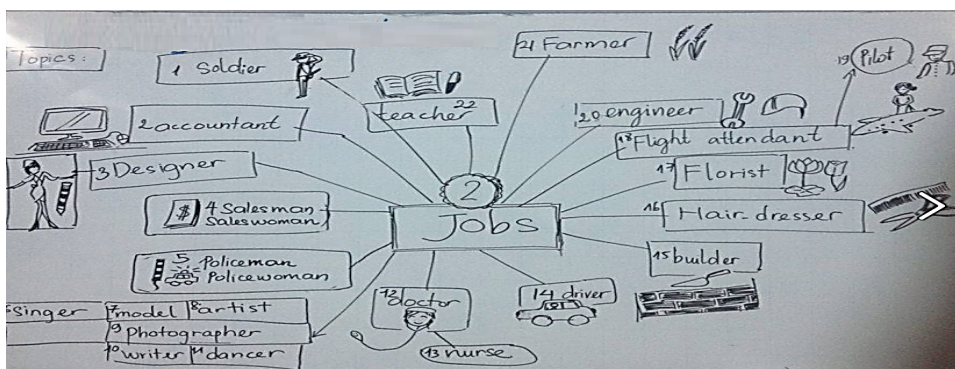 Topics:
1 Soldier
2 accountant
3 Designer
$
4 Salesman
Saleswoman
5 Policeman
Policewoman
singer
7 model
8 artist
9 Photographer
10 writer
11 dancer
12 doctor
13 nurse
14 driver
15 builder
16 Hair-dresser
17 Florist
18 Flight attendant
19 Pilot
20 engineer
21 Farmer
teacher 22
2
Jobs